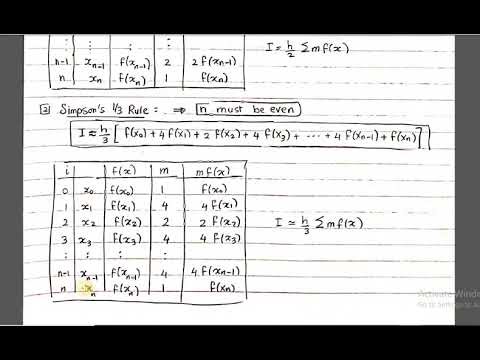 ⋮ ⋮ ⋮ ⋮ ⋮
n-1 x_{n-1} f(x_{n-1}) 2 2 f(x_{n-1})
n x_n f(x_n) 1 f(x_n)
I = h/2 Σ m f(x)
2 Simpson's 1/3 Rule = ⇒ n must be even
I ≈ h/3 [ f(x_0) + 4 f(x_1) + 2 f(x_2) + 4 f(x_3) + ⋯ + 4 f(x_{n-1}) + f(x_n) ]
i f(x) m m f(x)
0 x_0 f(x_0) 1 f(x_0)
1 x_1 f(x_1) 4 4 f(x_1)
2 x_2 f(x_2) 2 2 f(x_2)
3 x_3 f(x_3) 4 4 f(x_3)
⋮ ⋮ ⋮ ⋮ ⋮
n-1 x_{n-1} f(x_{n-1}) 4 4 f(x_{n-1})
n x_n f(x_n) 1 f(x_n)
I ≃ h/3 Σ m f(x)
Activate Windo
Go to Settings to A